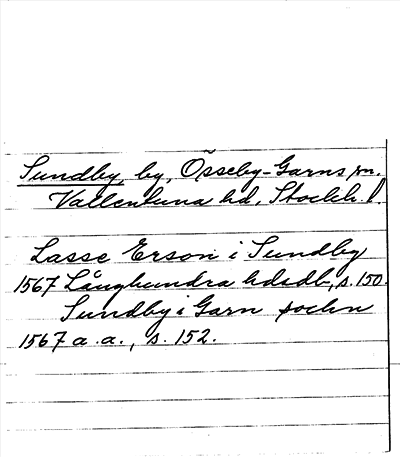 Sundby, by, Össeby-Garns sn.
Vallentuna hd, Stockh. l.
Lasse Erson i Sundby
1567 Långhundra hdsdb, s. 150.
Sundby i Garn sochn
1567 a.a., s. 152.